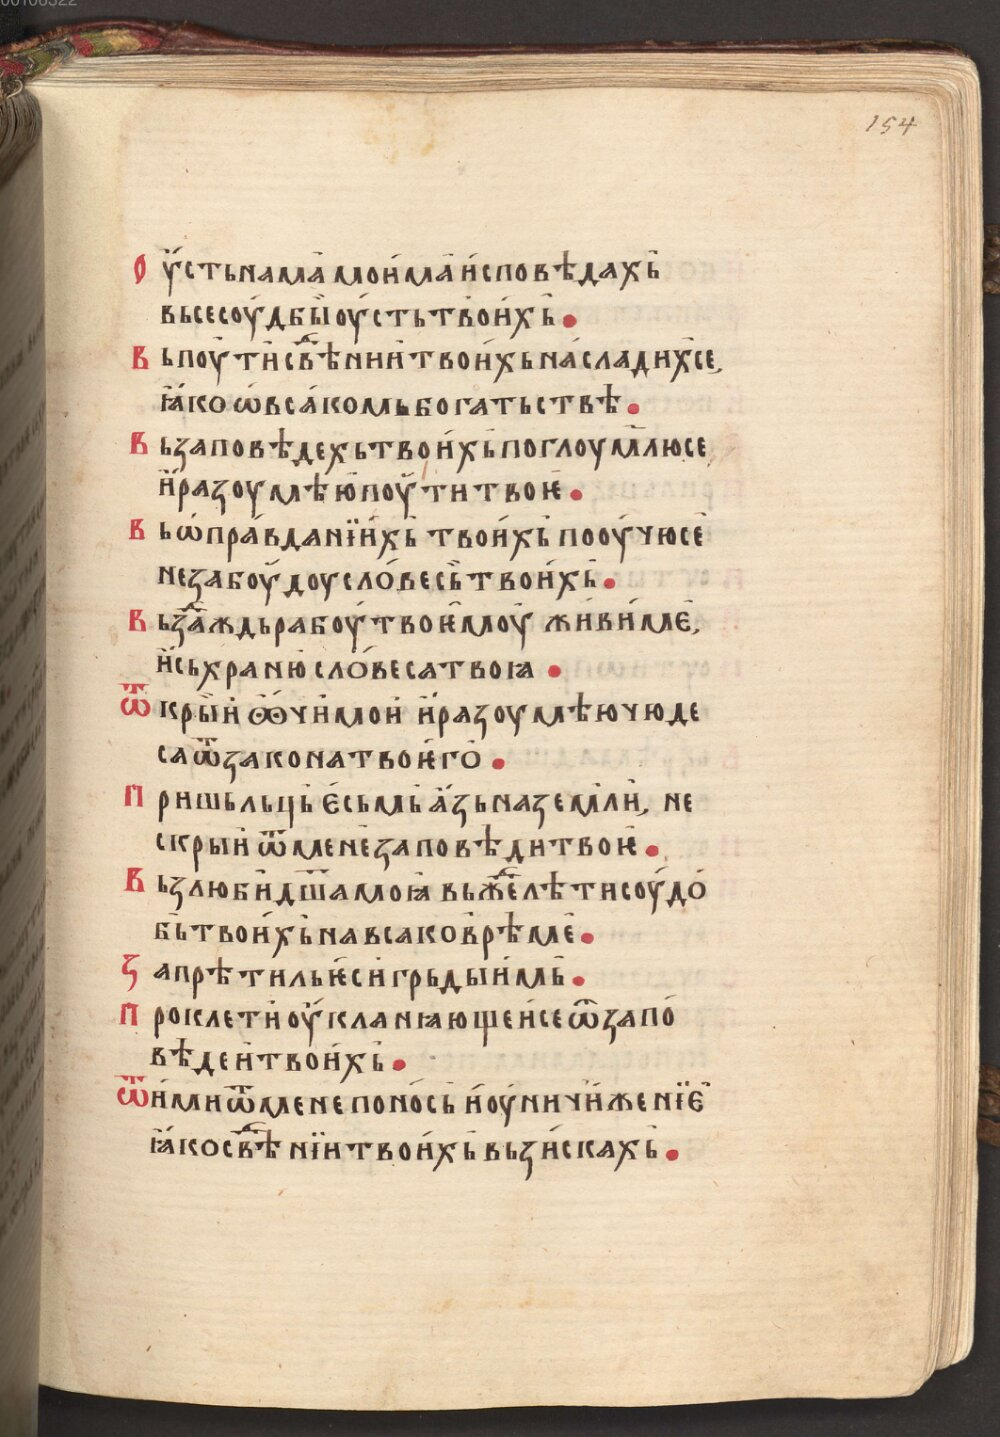 154
Оу҆стьнама мои҆ма и҆сповѣдахь
вьсе соу́дбы оу҆сть твои́хь.
Вь поути свⷣѣнїи твои́хь насладихсе,
ꙗ҆ко ѡ҆ всакомь богатьствѣ.
Вь заповѣдехь твои́хь поглоумлюсе,
и҆ разоумѣю поути твоѥ.
Вь ѡ҆правданїихь твои́хь пооучюсе
не забоудоу словесь твои́хь.
Вьзⷣаждь рабоу твоѥмоу живи ме,
и҆ сьхраню словеса твоꙗ.
Ѿкрыи ѻчи мои и҆ разоумѣю чюде
са ѿ закона твоѥго.
Пришьльць ѥсьмь а҆зь на земли, не
скрыи ѿ мене заповѣди твоѥ.
Вьзлюби дш҃а моꙗ вьжⷣелѣти соудо
бь твои́хь на всако врѣме.
Запрѣтиль ѥси грьдыимь.
Проклети оу҆кланꙗющеисе ѿ запо
вѣдеи твои́хь.
Ѿими ѿ мене поносъ и҆ оу҆ничиженїе
ꙗ҆ко свⷣѣнїи твои́хь вьзискахь.